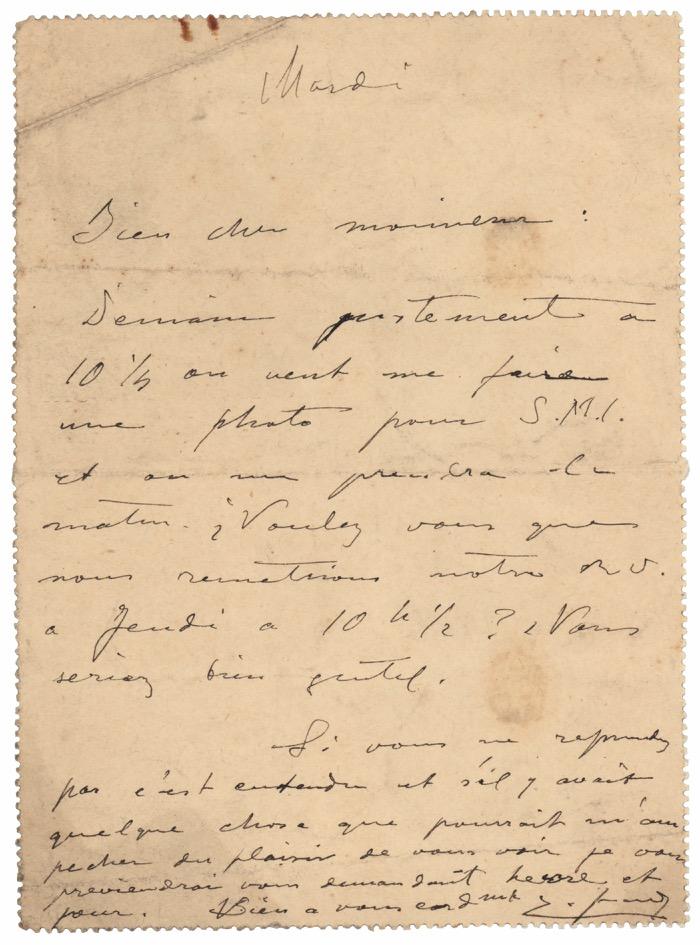 Mardi
Bien cher monsieur :
Demain justement a
10 ½ on vent me faire
une photo pour S.M.I.
et on me prendra le
matin. ¿Voulez vous que
nous remettions notre R V.
a Jeudi a 10 h ½ ? Vous
seriez bien gentil.
Si vous ne repondez
pas c'est entendu et s'il y avait
quelque chose que pourrait m'em
pecher du plaisir de vous voir je vous
previendrai vous demandant heure et
jour. Bien a vous cordmt